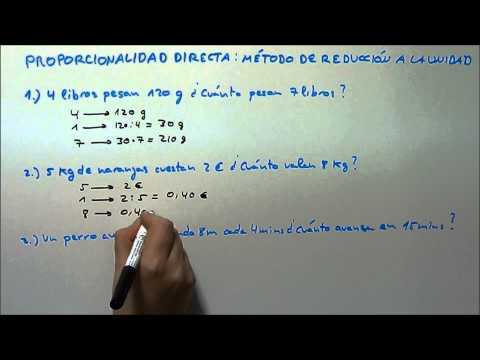 PROPORCIONALIDAD DIRECTA: MÉTODO DE REDUCCIÓN A LA UNIDAD
1.) 4 libros pesan 120 g ¿Cuánto pesan 7 libros?
4 → 120 g
1 → 120:4 = 30 g
7 → 30·7 = 210 g
2.) 5 kg de naranjas cuestan 2 € ¿Cuánto valen 8 kg?
5 → 2 €
1 → 2:5 = 0,40 €
8 → 0,40
3.) Un perro 8m cada 4 mins ¿Cuánto avanza en 15 mins?